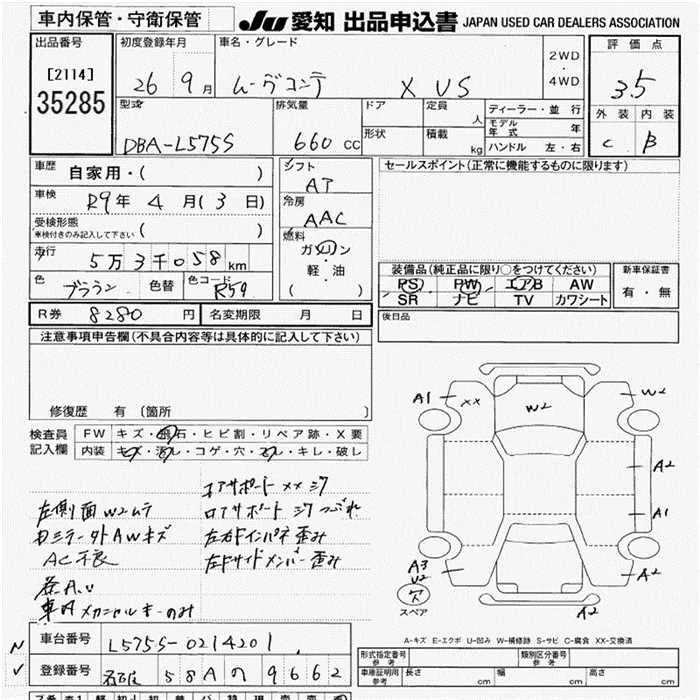 車内保管・守衛保管
JU 愛知 出品申込書 JAPAN USED CAR DEALERS ASSOCIATION
出品番号
[2114]
35285
初度登録年月
26 9月
車名・グレード
ムーヴコンテ X VS
2WD
・
4WD
評価点
3.5
外装 内装
C B
型式
DBA-L575S
排気量
660 cc
ドア
形状
定員 人
積載 kg
ディーラー・並行
モデル年式 年
ハンドル 左・右
車歴 自家用・( )
車検 R9年 4月(3日)
受検形態
※検付きのみ記入して下さい ( )
走行 5万3千058km
色 ブラウン 色替 色コード R59
シフト
AT
冷房
AAC
燃料
ガソリン
・
軽・油
( )
セールスポイント(正常に機能するものに限ります)
装備品(純正品に限り○をつけてください)
PS PW エアB AW
SR ナビ TV カワシート
新車保証書
有・無
R券 8280円 名変期限 月 日
後日品
注意事項申告欄(不具合内容等は具体的に記入して下さい)
修復歴 有 〔箇所 〕
検査員
記入欄
FW キズ・飛石・ヒビ割・リペア跡・X要
内装 キズ・汚レ・コゲ・穴・スレ・キレ・破レ
コアサポート XX ジワ
左側面W2ムラ
ロアサポート ジワ つぶれ
AC不良
左右インパネ歪み
左サイドメンバー歪み
車内メカニカルキーのみ
A1
XX
W2
W2
A2
A1
A2
A3
U2
欠
スペア
A2
A-キズ E-エクボ U-凹み W-補修跡 S-サビ C-腐食 XX-交換済
車台番号 L575S-0214201
登録番号 58Aの9662
型式指定番号
参考
類別区分番号
参考
車庫証明用
参考
長さ cm 幅 cm 高さ cm